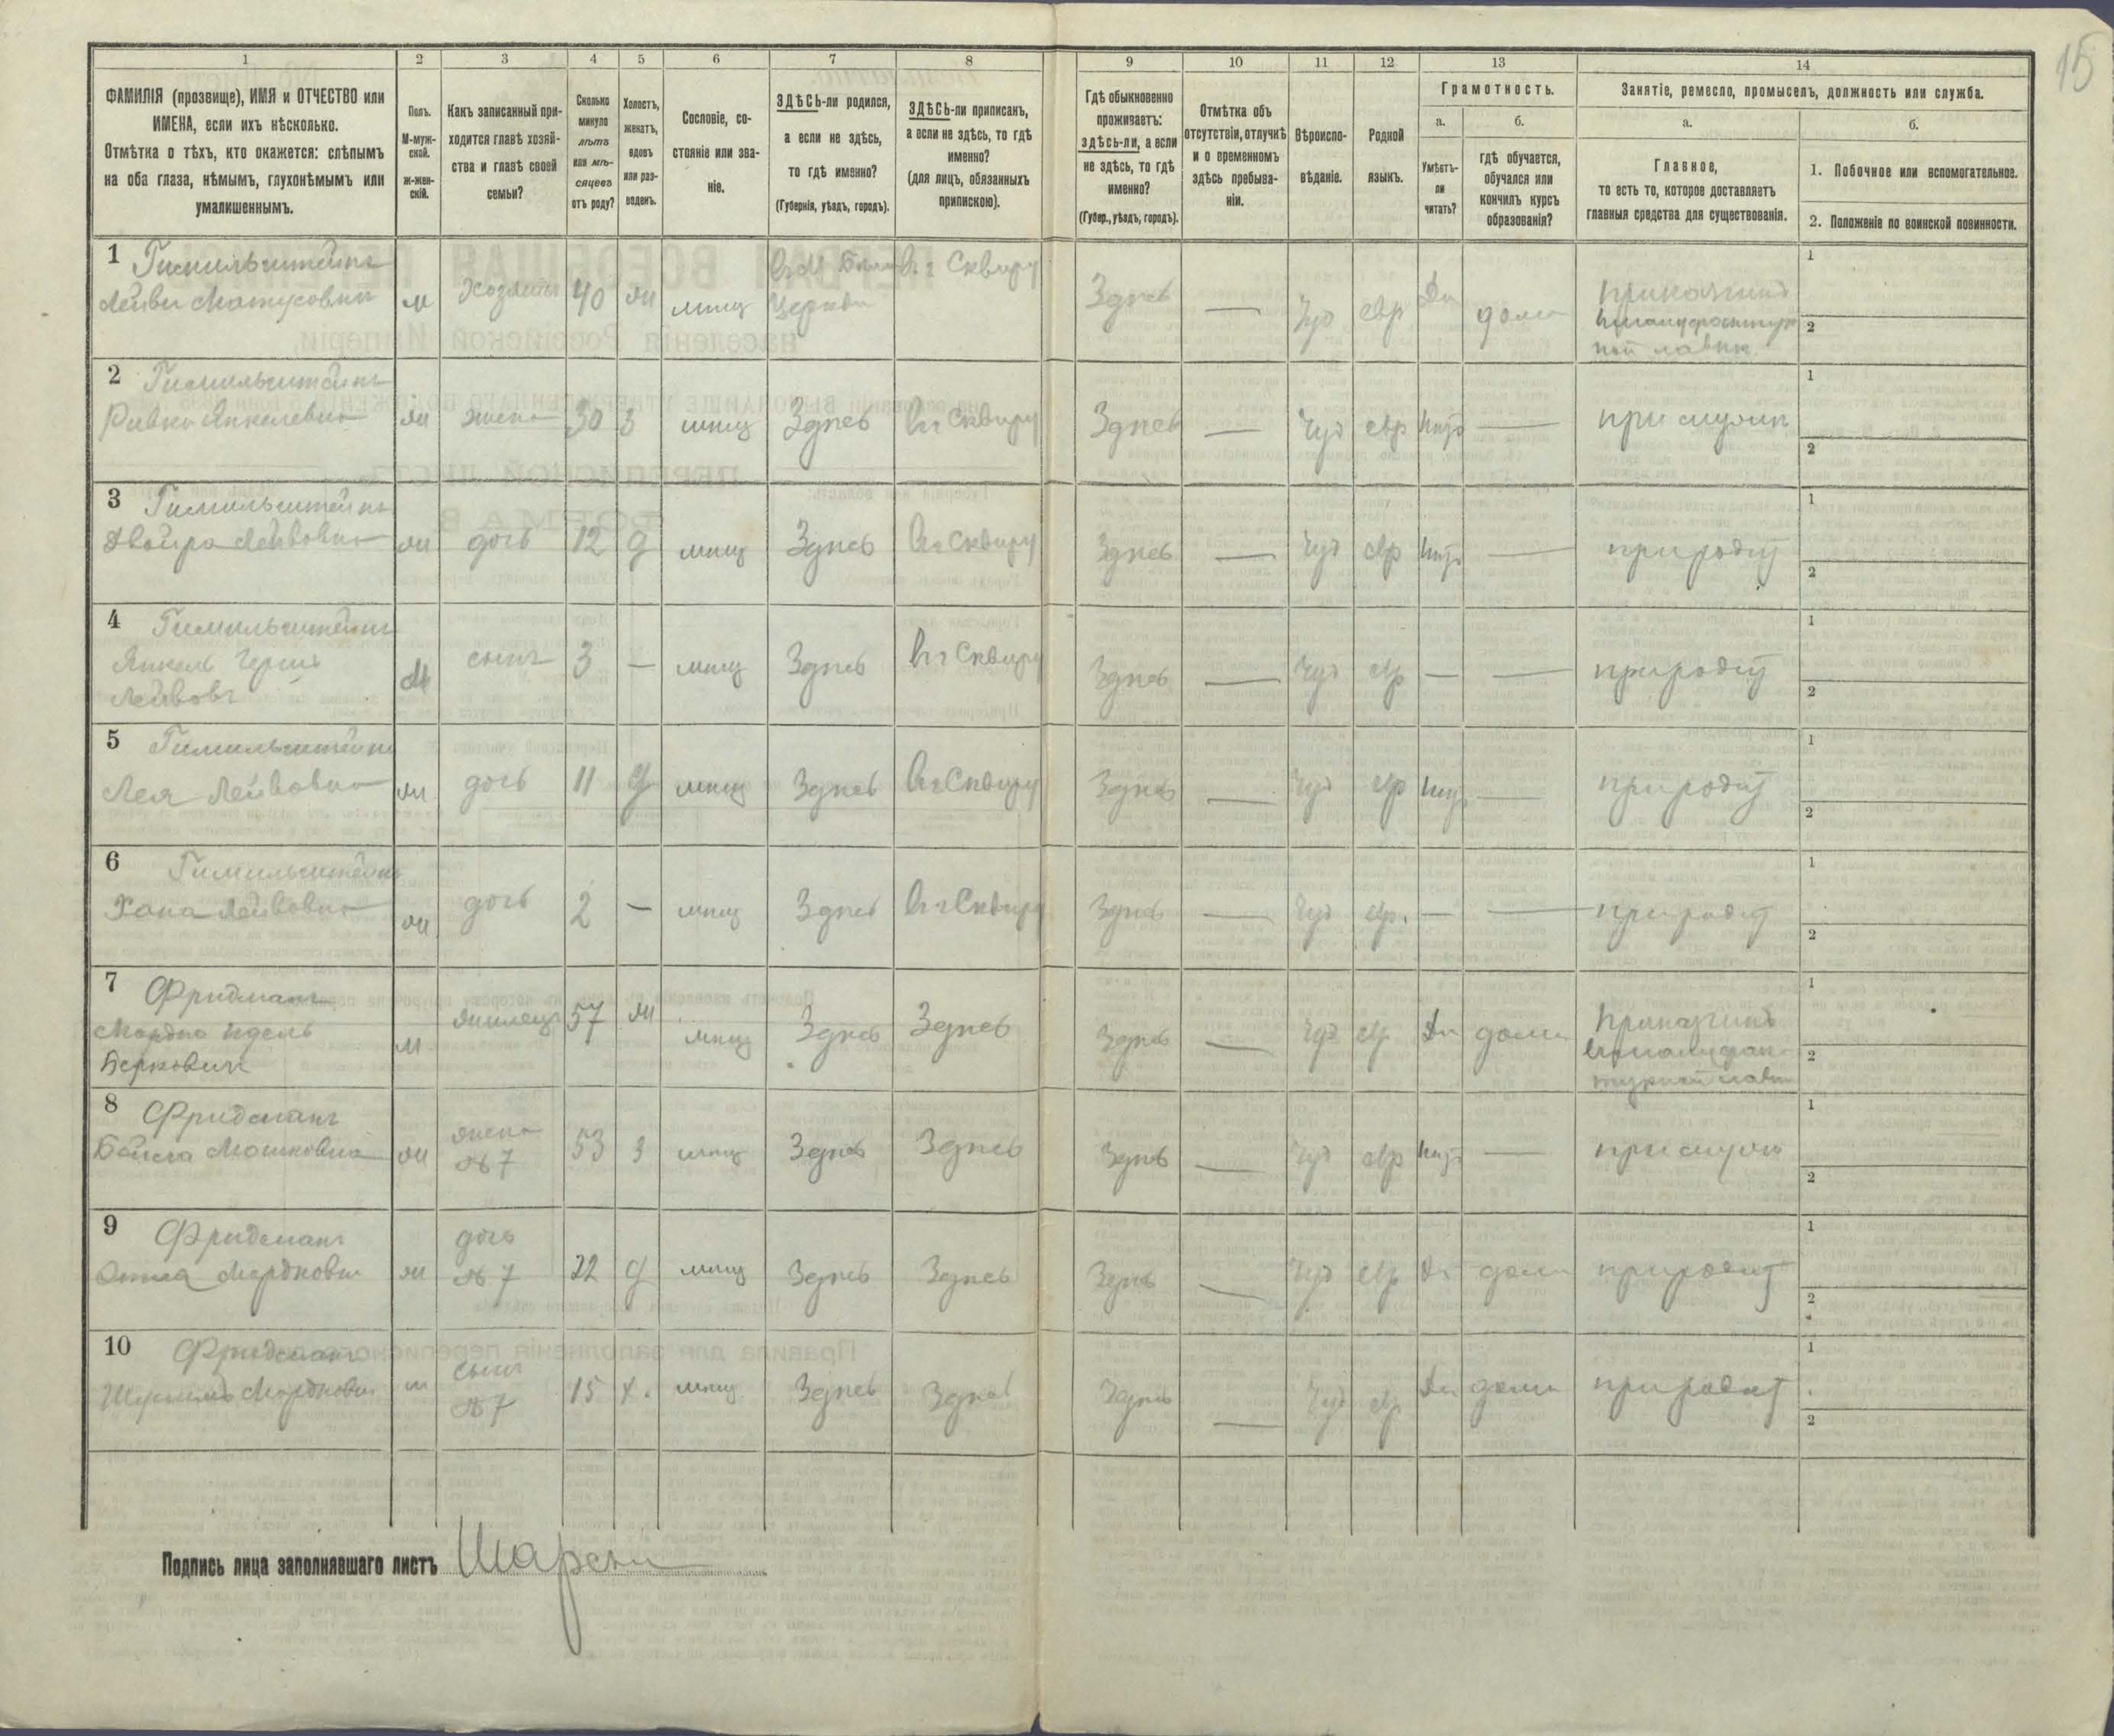 15
1
2
3
4
5
6
7
8
9
10
11
12
13
14
ФАМИЛІЯ (прозвище), ИМЯ и ОТЧЕСТВО или
ИМЕНА, если ихъ нѣсколько.
Отмѣтка о тѣхъ, кто окажется: слѣпымъ
на оба глаза, нѣмымъ, глухонѣмымъ или
умалишеннымъ.
Полъ.
М-муж-
ской.
Ж-жен-
скій.
Какъ записанный при-
ходится главѣ хозяй-
ства и главѣ своей
семьи?
Сколько
минуло
лѣтъ
или мѣ-
сяцевъ
отъ роду?
Холостъ,
женатъ,
вдовъ
или раз-
веденъ.
Сословіе, со-
стояніе или зва-
ніе.
ЗДѢСЬ-ли родился,
а если не здѣсь,
то гдѣ именно?
(Губернія, уѣздъ, городъ).
ЗДѢСЬ-ли приписанъ,
а если не здѣсь, то гдѣ
именно?
(для лицъ, обязанныхъ
припискою).
Гдѣ обыкновенно
проживаетъ:
здѣсь-ли, а если
не здѣсь, то гдѣ
именно?
(Губер., уѣздъ, городъ).
Отмѣтка объ
отсутствіи, отлучкѣ
и о временномъ
здѣсь пребыва-
ніи.
Вѣроиспо-
вѣданіе.
Родной
языкъ.
Грамотность.
а.
Умѣетъ-
ли
читать?
б.
гдѣ обучается,
обучался или
кончилъ курсъ
образованія?
Занятіе, ремесло, промыселъ, должность или служба.
а.
Главное,
то есть то, которое доставляетъ
главныя средства для существованія.
б.
1. Побочное или вспомогательное.
2. Положеніе по воинской повинности.
1 Гимильштейнъ
Лейви Матусовичъ
м
хозяинъ
40
ж
мѣщ
Церкви
Въ г Сквиру
Здѣсь
—
Іуд
евр
Да
дома
1
2
2 Гимильштейнъ
Ривка Янкелевна
ж
жена
30
З
мѣщ
Здѣсь
Въ г Сквиру
Здѣсь
—
Іуд
евр
Нѣтъ
—
при мужѣ
1
2
3 Гимильштейнъ
Двойра Лейвовна
ж
дочь
12
д
мѣщ
Здѣсь
Въ г Сквиру
Здѣсь
—
Іуд
евр
Нѣтъ
—
при родит
1
2
4 Гимильштейнъ
Янкель Герш
Лейвовъ
М
сынъ
3
—
мѣщ
Здѣсь
Въ г Сквиру
Здѣсь
—
Іуд
евр
—
—
при родит
1
2
5 Гимильштейнъ
Лея Лейвовна
ж
дочь
11
д
мѣщ
Здѣсь
Въ г Сквиру
Здѣсь
—
Іуд
евр
Нѣтъ
—
при родит
1
2
6 Гимильштейнъ
Хана Лейвовна
ж
дочь
2
—
мѣщ
Здѣсь
Въ г Сквиру
Здѣсь
—
Іуд
евр.
—
—
при родит
1
2
7 Фридманъ
Мордко Идель
Берковичъ
м
жилецъ
57
ж
мѣщ
Здѣсь
Здѣсь
Здѣсь
—
Іуд
евр
Да
дома
1
2
8 Фридманъ
Бейла Мошковна
ж
жена
№ 7
53
З
мѣщ
Здѣсь
Здѣсь
Здѣсь
—
Іуд
евр
Нѣтъ
—
при мужѣ
1
2
9 Фридманъ
Мордков
ж
дочь
№ 7
22
д
мѣщ
Здѣсь
Здѣсь
Здѣсь
—
Іуд
евр
Да
дома
при родит
1
2
10 Фридманъ
Мордков
м
сынъ
№ 7
15
х.
мѣщ
Здѣсь
Здѣсь
Здѣсь
—
Іуд
евр
Да
дома
при родит
1
2
Подпись лица заполнявшаго листъ